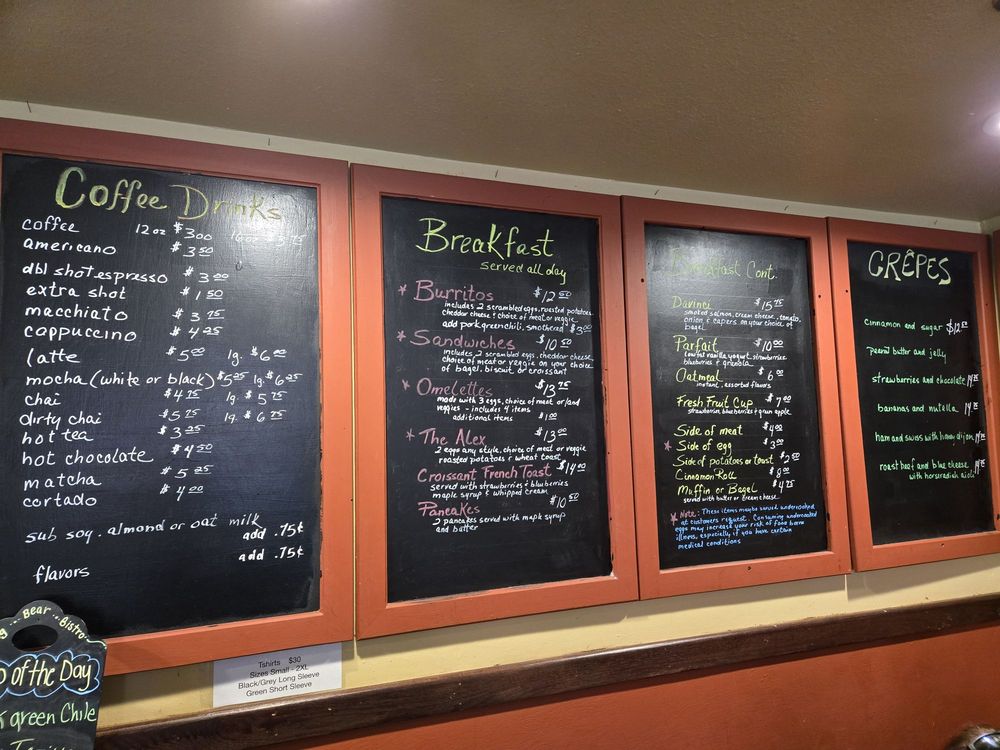 Coffee Drinks
coffee 12 oz $3.00 16 oz 3.75
americano $3.50
dbl shot espresso $3.00
extra shot $1.50
macchiato $3.75
cappuccino $4.25
latte $5.00 lg. $6.00
mocha (white or black) $5.25 lg. $6.25
chai $4.75 lg. $5.75
dirty chai $5.75 lg. $6.75
hot tea $3.25
hot chocolate $4.50
matcha $5.25
cortado $4.00
sub soy, almond or oat milk
add .75¢
add .75¢
flavors
Breakfast
served all day
* Burritos $12.50
includes 2 scrambled eggs, roasted potatoes,
cheddar cheese & choice of meat or veggie
add pork green chili, smothered $3.00
* Sandwiches $10.50
includes 2 scrambled eggs, cheddar cheese,
choice of meat or veggie on your choice
of bagel, biscuit or croissant
* Omelettes $13.75
made with 3 eggs, choice of meat or/and
veggies - includes 4 items
additional items $1.00
* The Alex $13.00
2 eggs any style, choice of meat or veggie
roasted potatoes & wheat toast
Croissant French Toast $14.00
served with strawberries & blueberries
maple syrup & whipped cream
Pancakes $10.50
2 pancakes served with maple syrup
and butter
Breakfast Cont.
Davinci $15.75
smoked salmon, cream cheese, tomato,
onion & capers on your choice of
bagel
Parfait $10.00
lowfat vanilla yogurt, strawberries
blueberries & granola
Oatmeal $6.00
instant, assorted flavors
Fresh Fruit Cup $7.00
strawberries, blueberries & green apple
Side of meat $4.00
* Side of egg $3.00
Side of potatoes or toast $2.50
Cinnamon Roll $8.00
Muffin or Bagel $4.75
served with butter or cream cheese
* Note: These items maybe served undercooked
at customers request. Consuming undercooked
eggs may increase your risk of food borne
illness, especially if you have certain
medical conditions
CRÊPES
cinnamon and sugar $12.50
peanut butter and jelly
strawberries and chocolate 14.75
bananas and nutella 14.75
ham and swiss with honey dijon 14.75
roast beef and blue cheese 14.75
with horseradish aioli
Bear Bistro
of the Day
green Chile
Tshirts $30
Sizes Small - 2XL
Black/Grey Long Sleeve
Green Short Sleeve